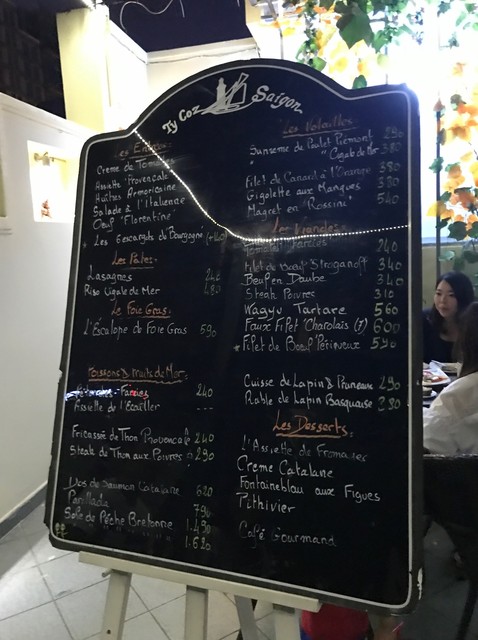 Ty Coz Saigon
Les Entrées.
Creme de Tomates
Assiette Provencale
Huîtres Armoricaine
Salade à l'Italienne
Oeuf "Florentine"
Les escargots de Bourgogne
Les Pates.
Lasagnes 240
Riso Cigale de Mer 480
Le Foie Gras.
L'Escalope de Foie Gras 590
Poissons & fruits de Mer.
Farcies 240
Assiette de l'Ecailler ---
Fricassée de Thon Provencale 240
Steak de Thon aux Poivres 290
Dos de Saumon Catalane 620
Parillada 790
Sole de Pêche Bretonne 1.490
1.620
Les Volailles.
Supreme de Poulet Piemont 290
" Cigale de Mer 380
Filet de Canard à l'Orange 380
Gigolette aux Mangues 380
Magret en "Rossini" 540
Les Viandes.
Tomates Farcies 240
Filet de Boeuf Stroganoff 340
Boeuf en Daube 340
Steak Poivre 310
Wagyu Tartare 560
Faux Filet Charolais 600
* Filet de Boeuf Périgueux 590
Cuisse de Lapin & Pruneaux 290
Rable de Lapin Basquaise 380
Les Desserts.
L'Assiette de Fromages
Creme Catalane
Fontainebleau aux Figues
Pithivier
Café Gourmand